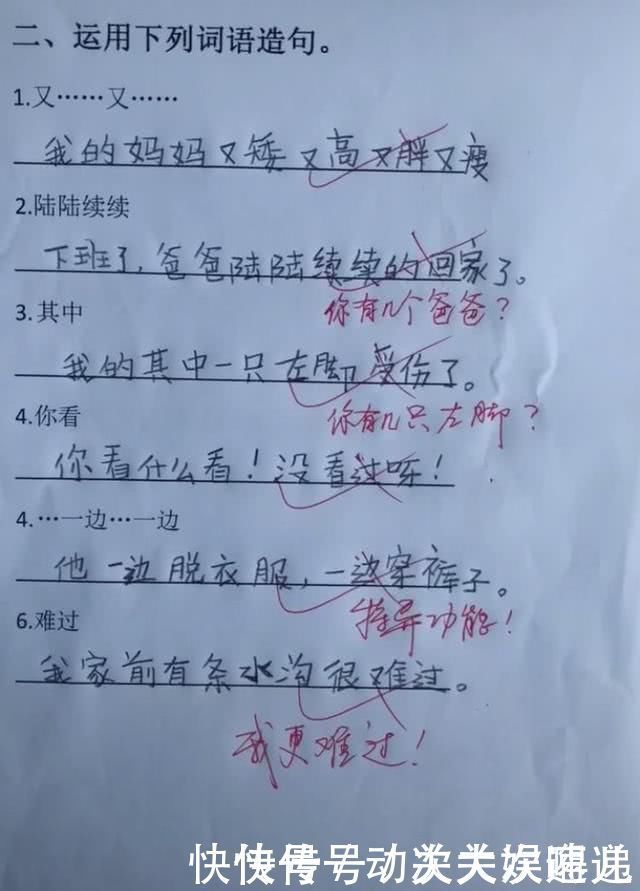 二、运用下列词语造句。
1.又……又……
我的妈妈又矮又高又胖又瘦
2.陆陆续续
下班了，爸爸陆陆续续的回家了。
你有几个爸爸？
3.其中
我的其中一只左脚受伤了。
你有几只左脚？
4.你看
你看什么看！没看过呀！
4.…一边…一边
他一边脱衣服，一边穿裤子。
特异功能！
6.难过
我家前有条水沟很难过。
我更难过！